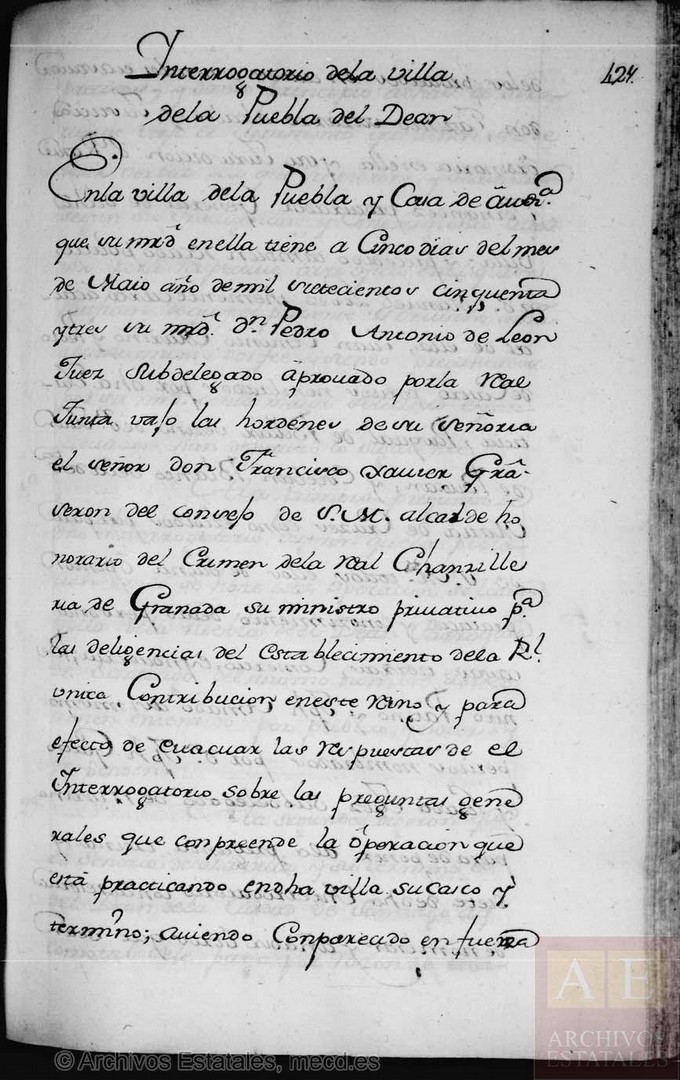 Interrogatorio dela villa
424.
dela Puebla del Dean
Enla villa dela Puebla y Casa de audª.
que su mrd enella tiene a Cinco dias del mes
de Maio año demil sietecientos cinquenta
ytres su mrd. Dn Pedro Antonio de Leon
Juez Subdelegado aprovado porla Real
Junta vajo las hordenes de su Señoria
el señor don Francisco Xavier Gra-
seron del consejo de S. M. alcalde ho
norario del Crimen dela Real Chanzille
ria de Granada su ministro privativo pª
las deligencias del establecimiento dela Rl.
vnica Contribucion eneste Reino y para
efecto de evacuar las Respuestas de el
Interrogatorio sobre las preguntas gene
rales que conpreende la operacion que
está practicando endha villa su casco y
termino; aviendo Conpareado en fuerza
© Archivos Estatales, mecd.es
AE
ARCHIVOS
ESTATALES